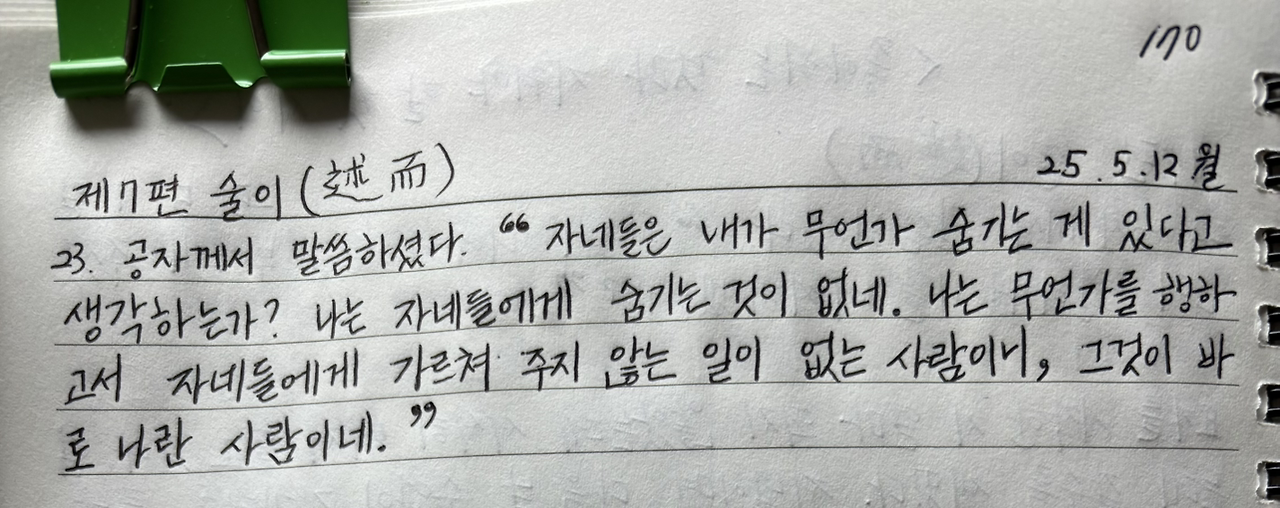 170
제7편 술이(述而) 25.5.12 월
23. 공자께서 말씀하셨다. “자네들은 내가 무언가 숨기는 게 있다고
생각하는가? 나는 자네들에게 숨기는 것이 없네. 나는 무언가를 행하
고서 자네들에게 가르쳐 주지 않는 일이 없는 사람이니, 그것이 바
로 나란 사람이네.”